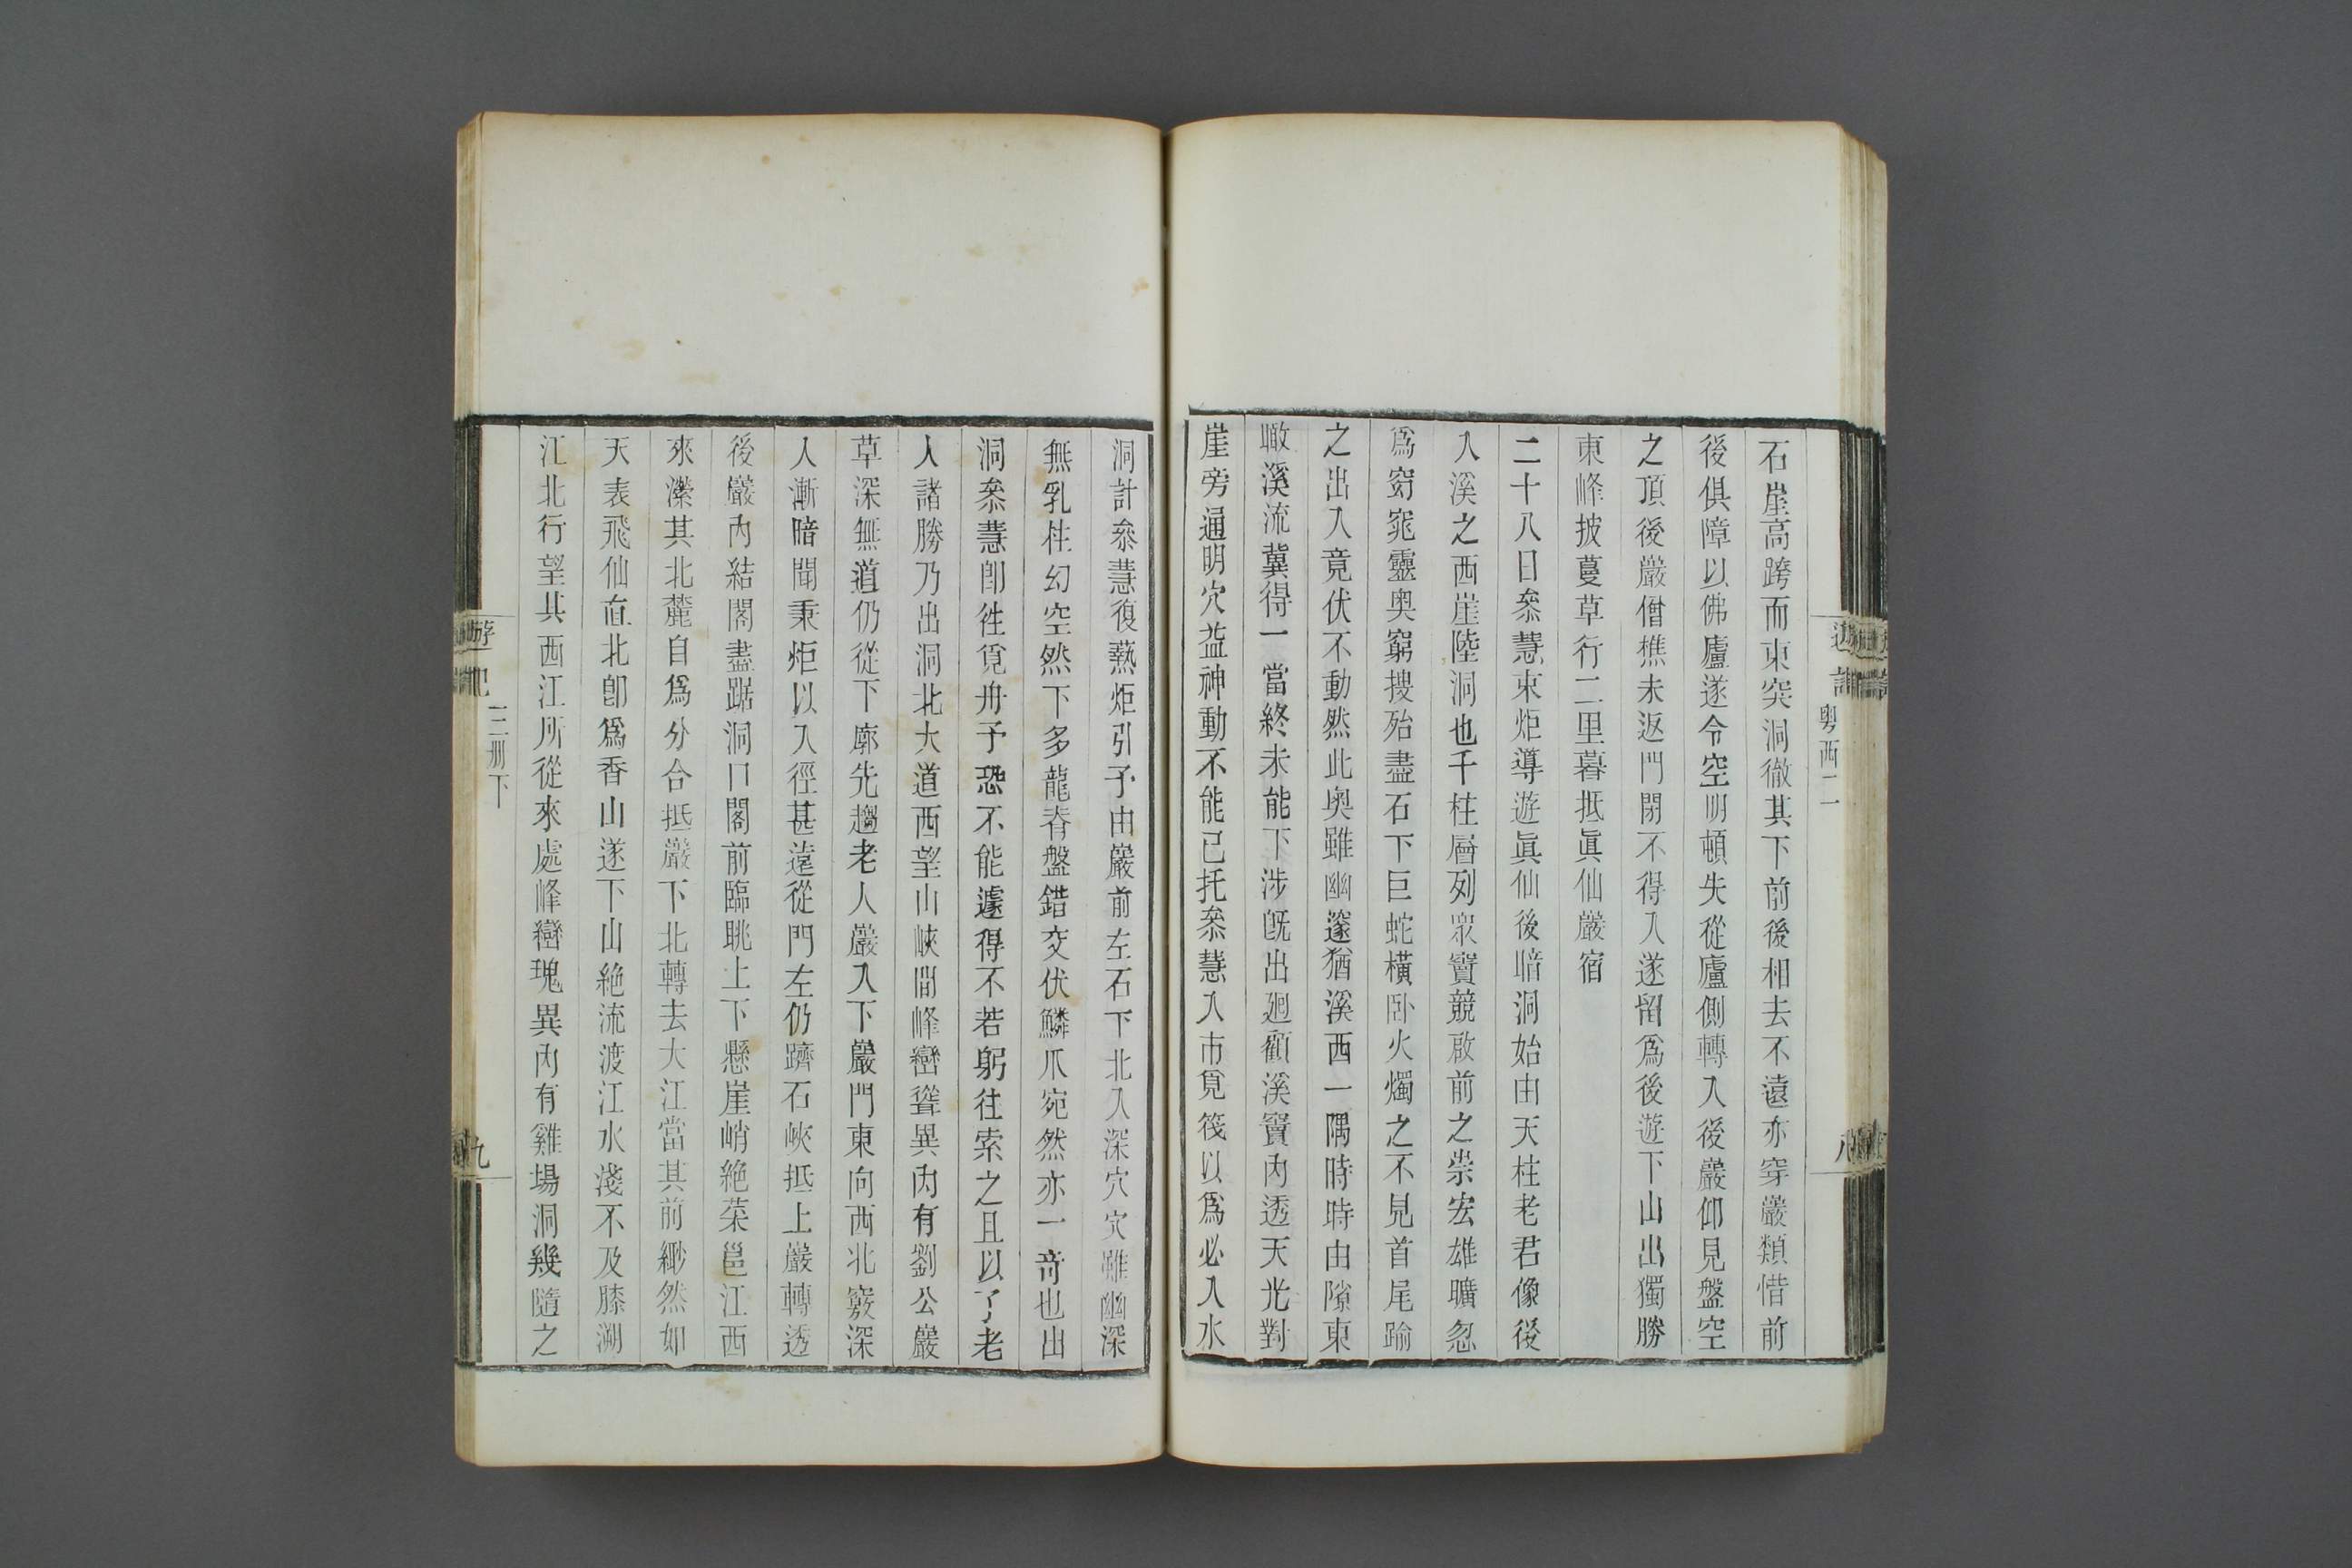 粤西二
石崖高跨而東突洞徹其下前後相去不遠亦穿巖類惜前
後俱障以佛廬遂令空明頓失從廬側轉入後巖仰見盤空
之頂後巖僧樵未返門閉不得入遂留爲後遊下山出獨勝
東峰披蔓草行二里暮抵眞仙巖宿
二十八日叅慧束炬導遊眞仙後暗洞始由天柱老君像後
入溪之西崖陸洞也千柱層列眾竇競啟前之崇宏雄曠忽
爲窈窕靈奥窮搜殆盡石下巨蛇橫卧火燭之不見首尾踰
之出入竟伏不動然此奥雖幽邃猶溪西一隅時時由隙東
瞰溪流冀得一當終未能下涉旣出廻顧溪竇內透天光對
崖旁通明穴益神動不能已托叅慧入市覓筏以爲必入水
洞計叅慧復爇炬引予由巖前左石下北入深穴穴雖幽深
無乳柱幻空然下多龍脊盤錯交伏鱗爪宛然亦一奇也出
洞叅慧卽徃覓舟予恐不能遽得不若躬往索之且以了老
人諸勝乃出洞北大道西望山峽間峰巒聳異內有劉公巖
草深無道仍從下廓先趨老人巖入下巖門東向西北竅深
入漸暗聞秉炬以入徑甚遠從門左仍躋石峽抵上巖轉透
後巖內結閣盡踞洞口閣前臨眺上下懸崖峭絶菜邕江西
來瀠其北麓自爲分合抵巖下北轉去大江當其前緲然如
天表飛仙直北卽爲香山遂下山絶流渡江水淺不及膝溯
江北行望其西江所從來處峰巒瑰異內有雞場洞幾隨之
遊記
三册下
九